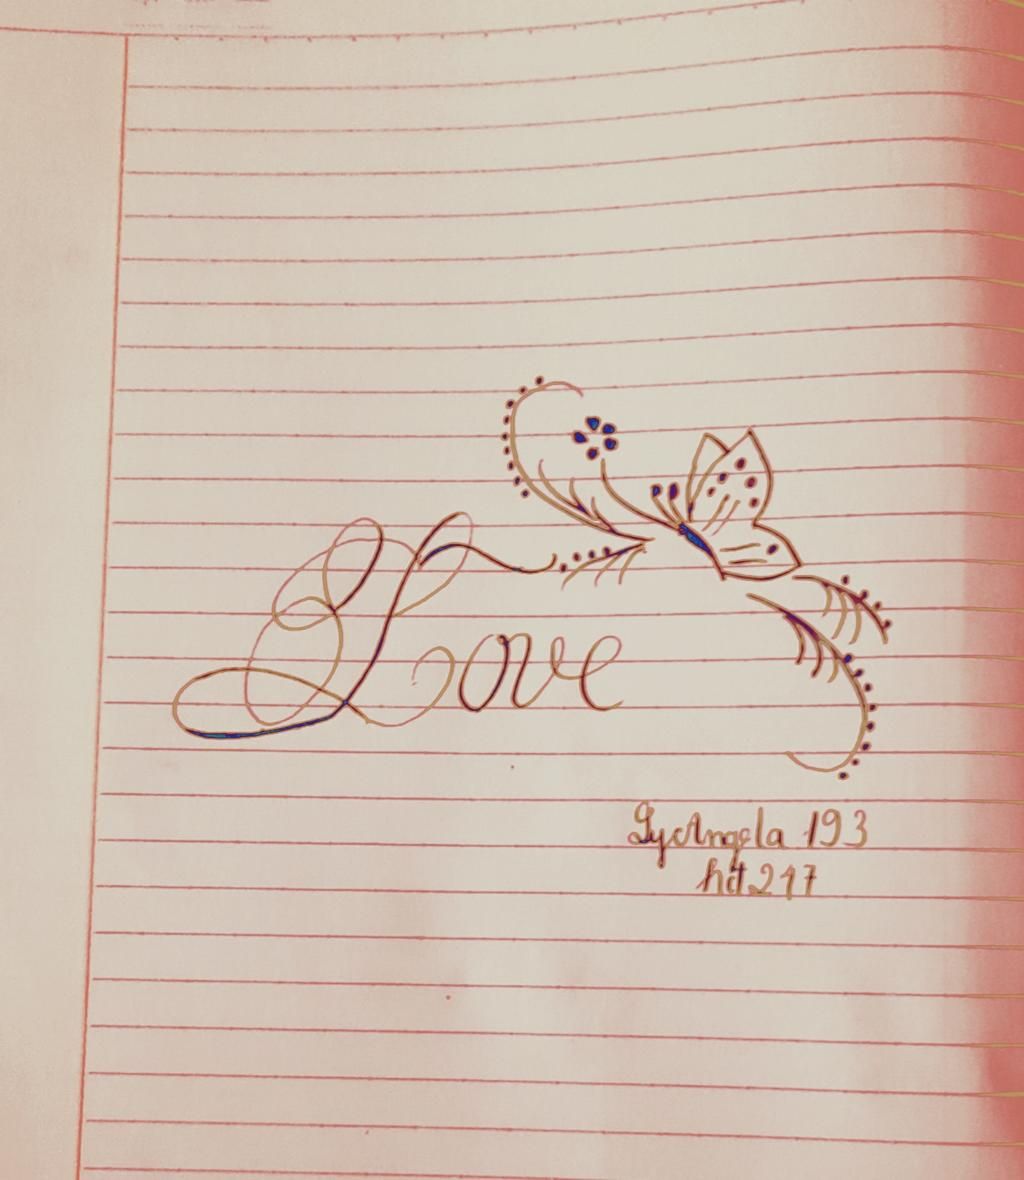 Love
GycAngela 193
hit 247